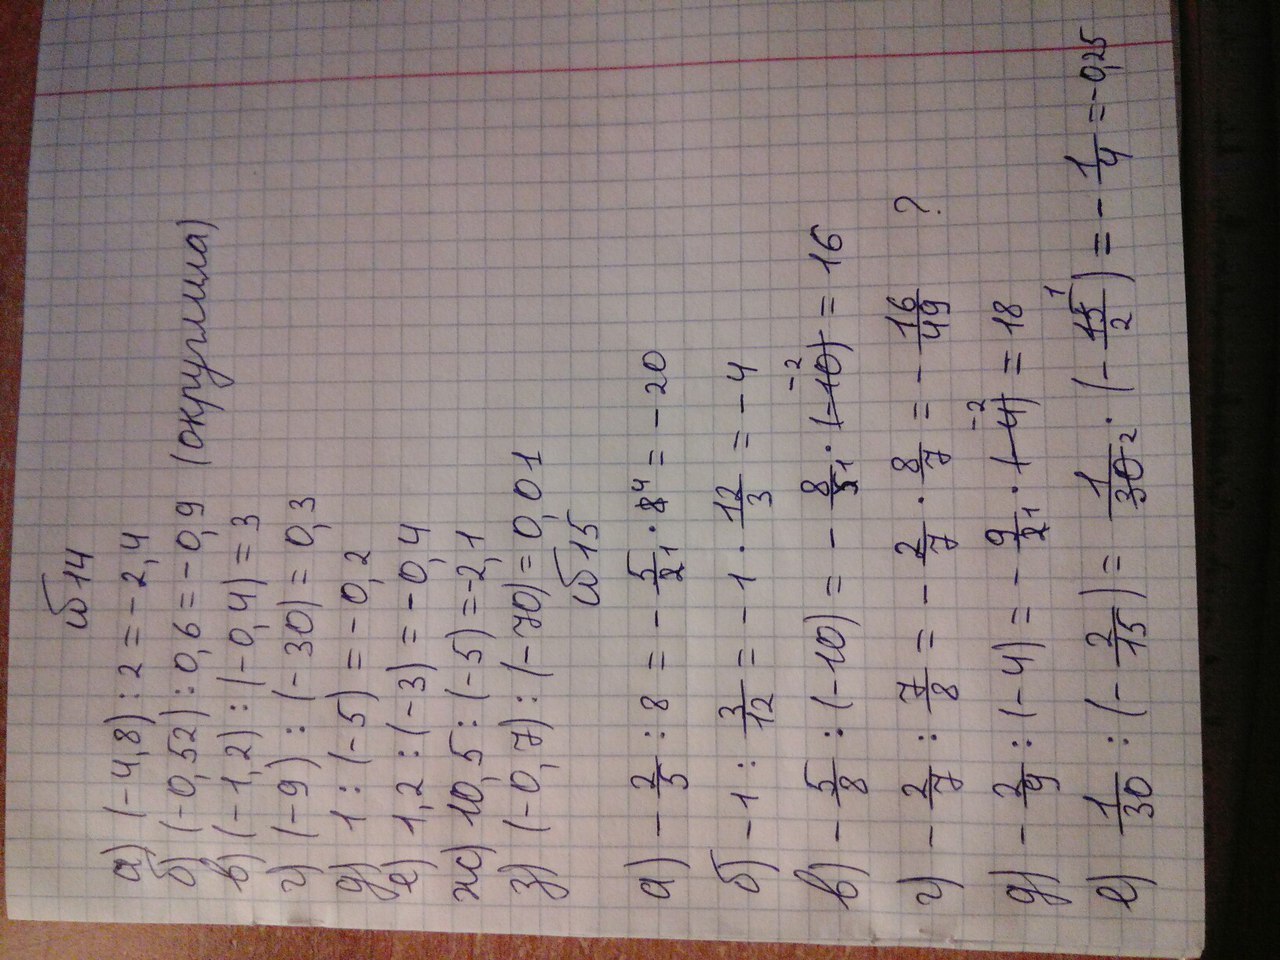 №14
а) (-4,8) : 2 = -2,4
б) (-0,52) : 0,6 = -0,9 (округлила)
в) (-1,2) : (-0,4) = 3
г) (-9) : (-30) = 0,3
д) 1 : (-5) = -0,2
е) 1,2 : (-3) = -0,4
ж) 10,5 : (-5) = -2,1
з) (-0,7) : (-70) = 0,01
№15
а) - 2/5 : 8 = - 5/2 1 · 8 4 = -20
б) -1 : 3/12 = -1 · 12/3 = -4
в) - 5/8 : (-10) = - 8/5 1 · (-10) -2 = 16
г) - 2/7 : 7/8 = - 2/7 · 8/7 = - 16/49 ?
д) - 2/9 : (-4) = - 9/2 1 · (-4) -2 = 18
е) 1/30 : (- 2/15) = 1/30 2 · (- 15/2 1) = - 1/4 = -0,25